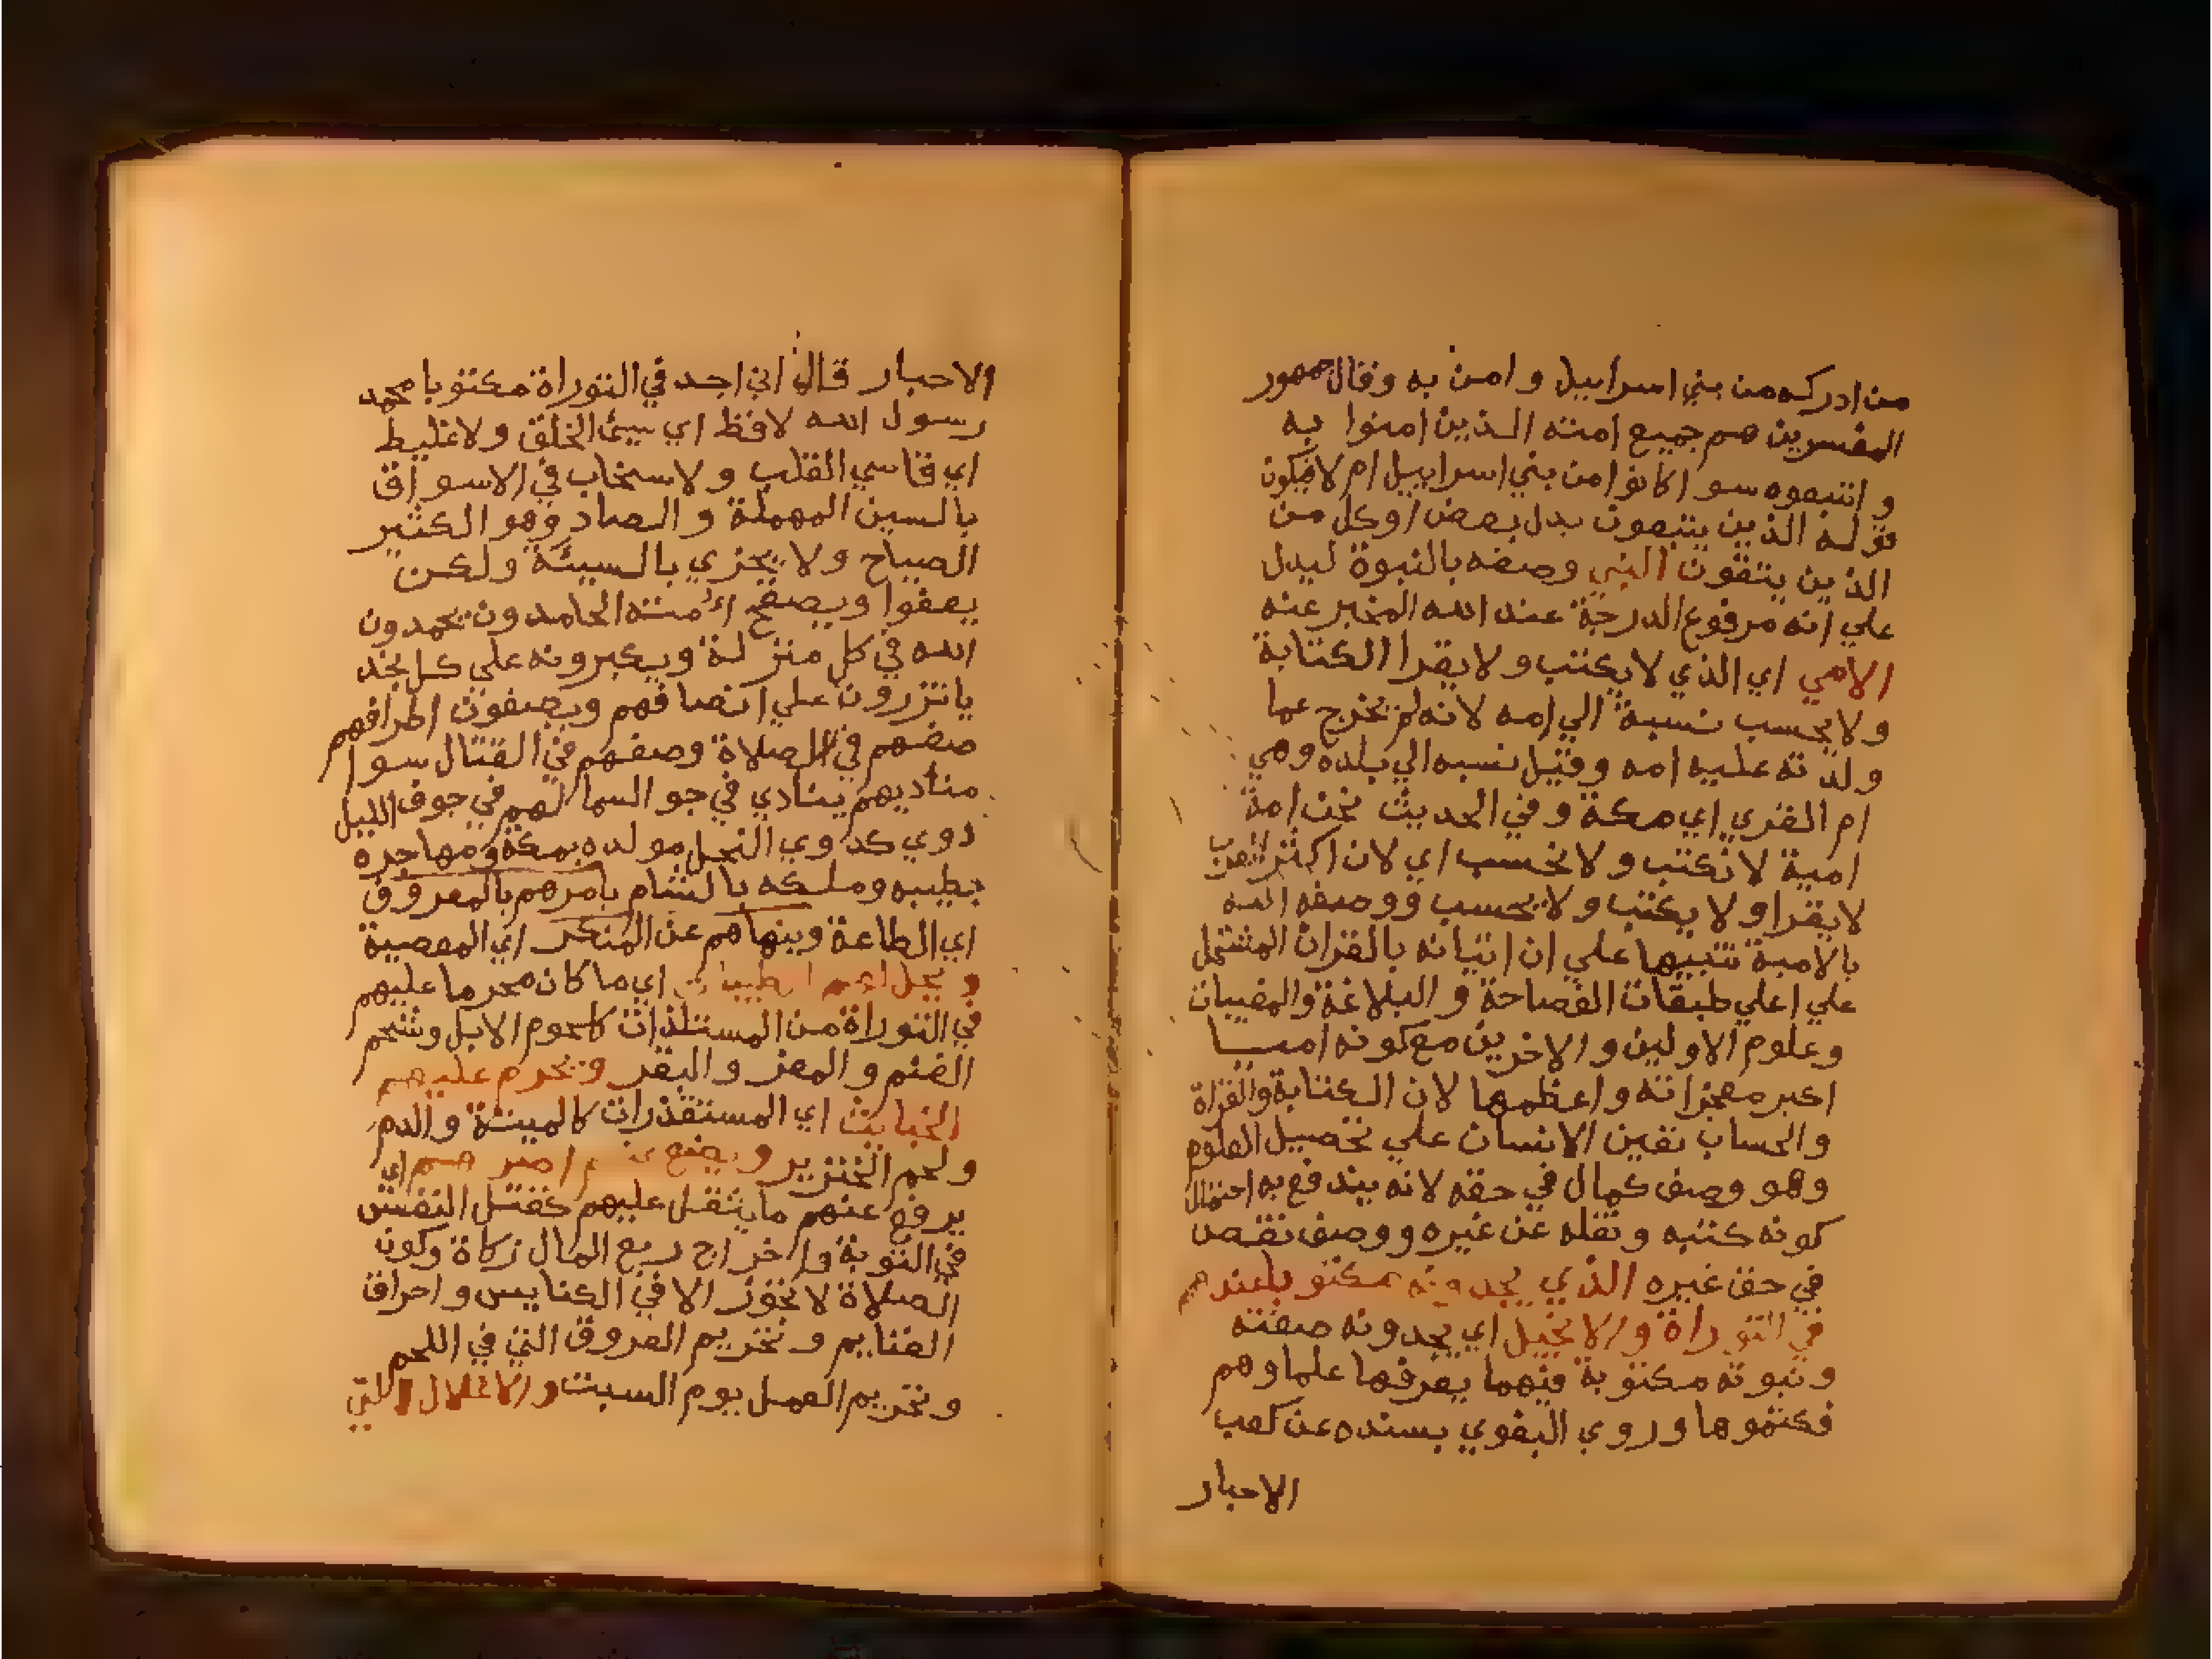 من ادركه من بني اسراييل وامن به وقال جمهور
المفسرين هم جميع امته الذين امنوا به
واتبعوه سوا كانوا من بني اسراييل ام لا فيكون
قوله الذين يتبعون بدل بعض او كل من
الذين يتقون النبي وصفه بالنبوة ليدل
علي انه مرفوع الدرجة عند الله المخبر عنه
الامي اي الذي لا يكتب ولا يقرا الكتابة
ولا يحسب نسبة الي امه لانه لم يخرج عما
ولدته عليه امه وقيل نسبه الي بلده وهي
ام القري اي مكة وفي الحديث نحن امة
امية لا نكتب ولا نحسب اي لان اكثر العرب
لا يقرا ولا يكتب ولا يحسب ووصفه الله
بالامية تنبيها علي ان اتيانه بالقران المشتمل
علي اعلي طبقات الفصاحة والبلاغة والمغيبات
وعلوم الاولين والاخرين مع كونه اميا
اكبر معجزاته واعظمها لان الكتابة والقراة
والحساب تعين الانسان علي تحصيل العلوم
وهو وصف كمال في حقه لانه يندفع به احتمال
كونه كتبه ونقله عن غيره ووصف نقص
في حق غيره الذي يجدونه مكتوبا عندهم
في التوراة والانجيل اي يجدونه صفته
ونبوته مكتوبة فيهما يعرفها علماوهم
فكتموها وروي البغوي بسنده عن كعب
الاحبار
الاحبار قال اني اجد في التوراة مكتوبا محمد
رسول الله لا فظ اي سيئ الخلق ولا غليظ
اي قاسي القلب ولا سخاب في الاسواق
بالسين المهملة والصاد وهو الكثير
الصياح ولا يجزي بالسيئة ولكن
يعفوا ويصفح امته الحامدون يحمدون
الله في كل منزلة ويكبرونه علي كل نجد
ياتزرون علي انصافهم ويصفون اطرافهم
صفهم في الصلاة وصفهم في القتال سوا
مناديهم ينادي في جو السما لهم في جوف الليل
دوي كدوي النحل مولده بمكة ومهاجره
بطيبه وملكه بالشام يامرهم بالمعروف
اي الطاعة وينهاهم عن المنكر اي المعصية
ويحل لهم الطيبات اي ما كان محرما عليهم
في التوراة من المستلذات كلحوم الابل وشحم
الغنم والمعز والبقر ويحرم عليهم
الخبايث اي المستقذرات كالميتة والدم
ولحم الخنزير ويضع عنهم اصرهم اي
يرفع عنهم ما يثقل عليهم كقتل النفس
في التوبة واخراج ربع المال زكاة وكون
الصلاة لا تجوز الا في الكنايس واحراق
الغنايم وتحريم العروق التي في اللحم
وتحريم العمل يوم السبت والاغلال التي